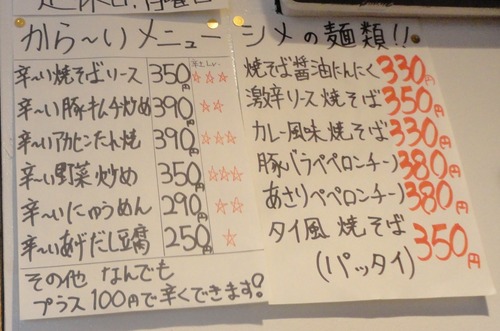 から〜いメニュー
辛〜い焼そばソース 350円 ☆☆☆
辛〜い豚キムチ炒め 390円 ☆☆
辛〜いアカヒンたれ焼 390円 ☆☆
辛〜い野菜炒め 350円 ☆☆☆
辛〜いにゅうめん 290円 ☆☆
辛〜いあげだし豆腐 250円 ☆
その他 なんでも
プラス100円で辛くできます!
シメの麺類!!
焼そば醤油にんにく 330円
激辛ソース焼そば 350円
カレー風味焼そば 330円
豚バラペペロンチーノ 380円
あさりペペロンチーノ 380円
タイ風 焼そば 350円
(パッタイ)